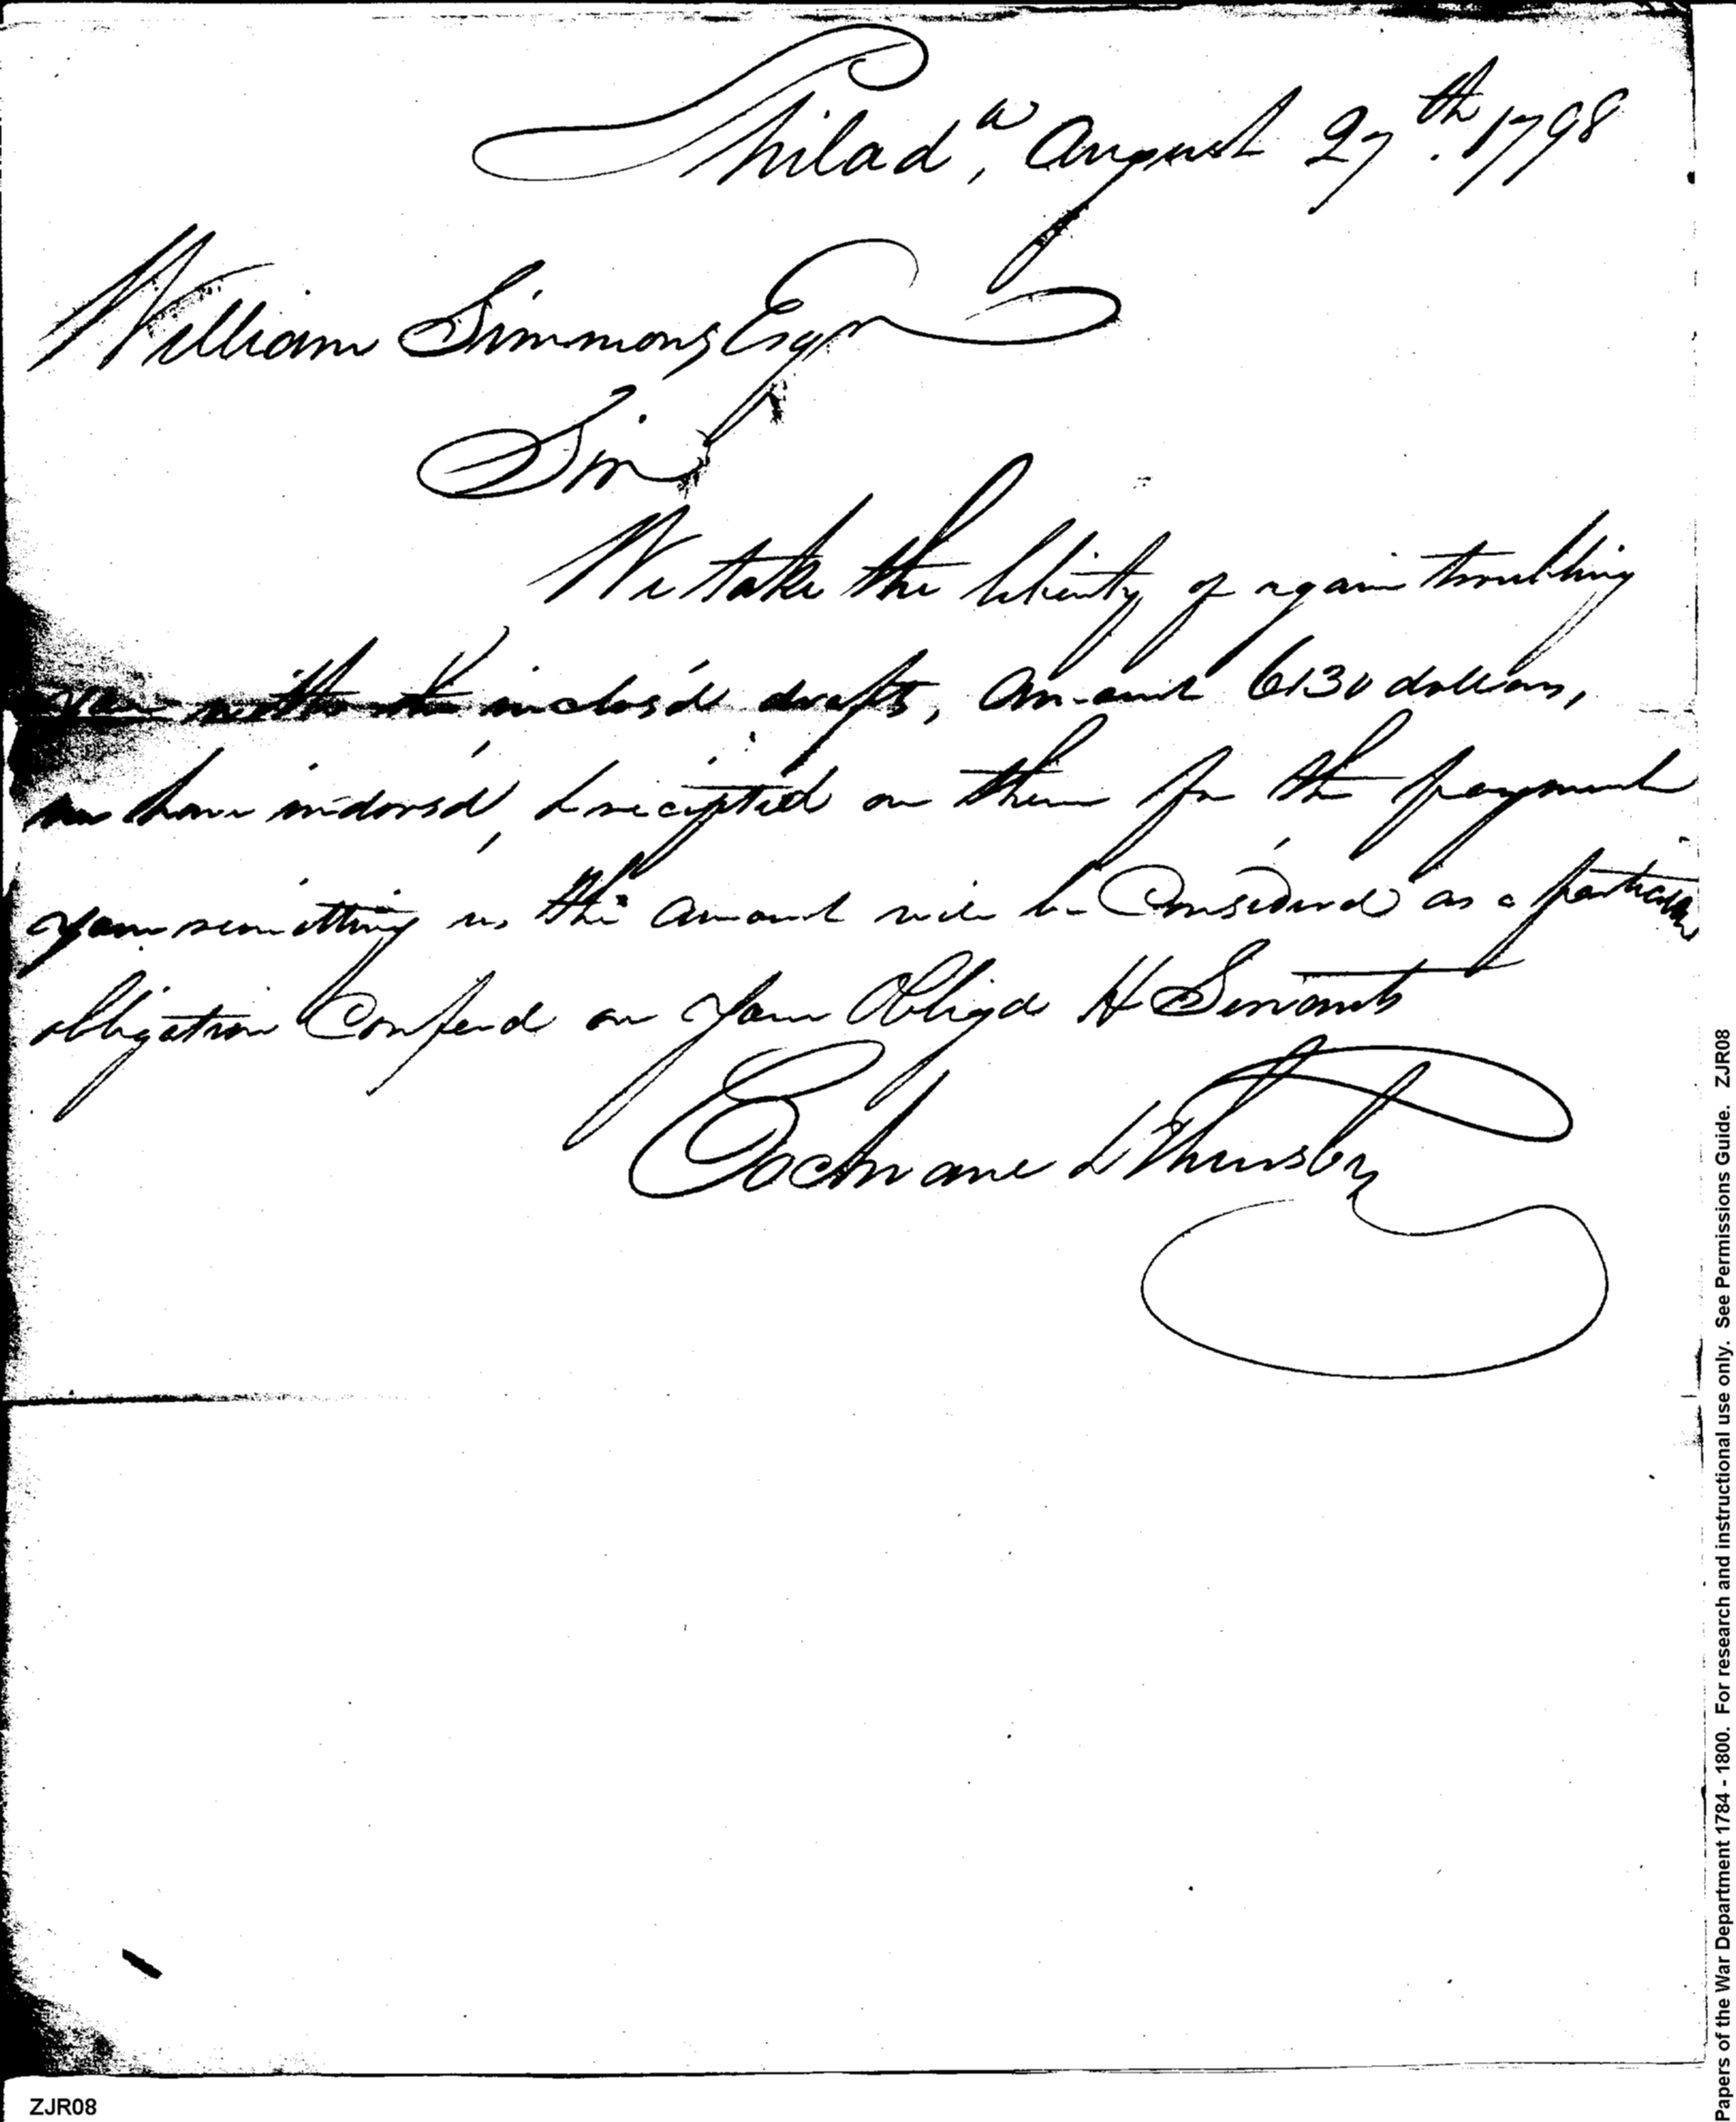 Philad.a, August 27th. 1798
William Simmons Esqr
Sir
We take the liberty of again troubling
you with the inclos'd drafts, Amount 6130 dollars,
we have indors'd, & recipted on them for the payment
your remitting us the amount will be Considerd as a particular
obligation Conferd on your Obligd H Servants
Cochrane & Thursby
ZJR08
Papers of the War Department 1784 - 1800. For research and instructional use only. See Permissions Guide. ZJR08